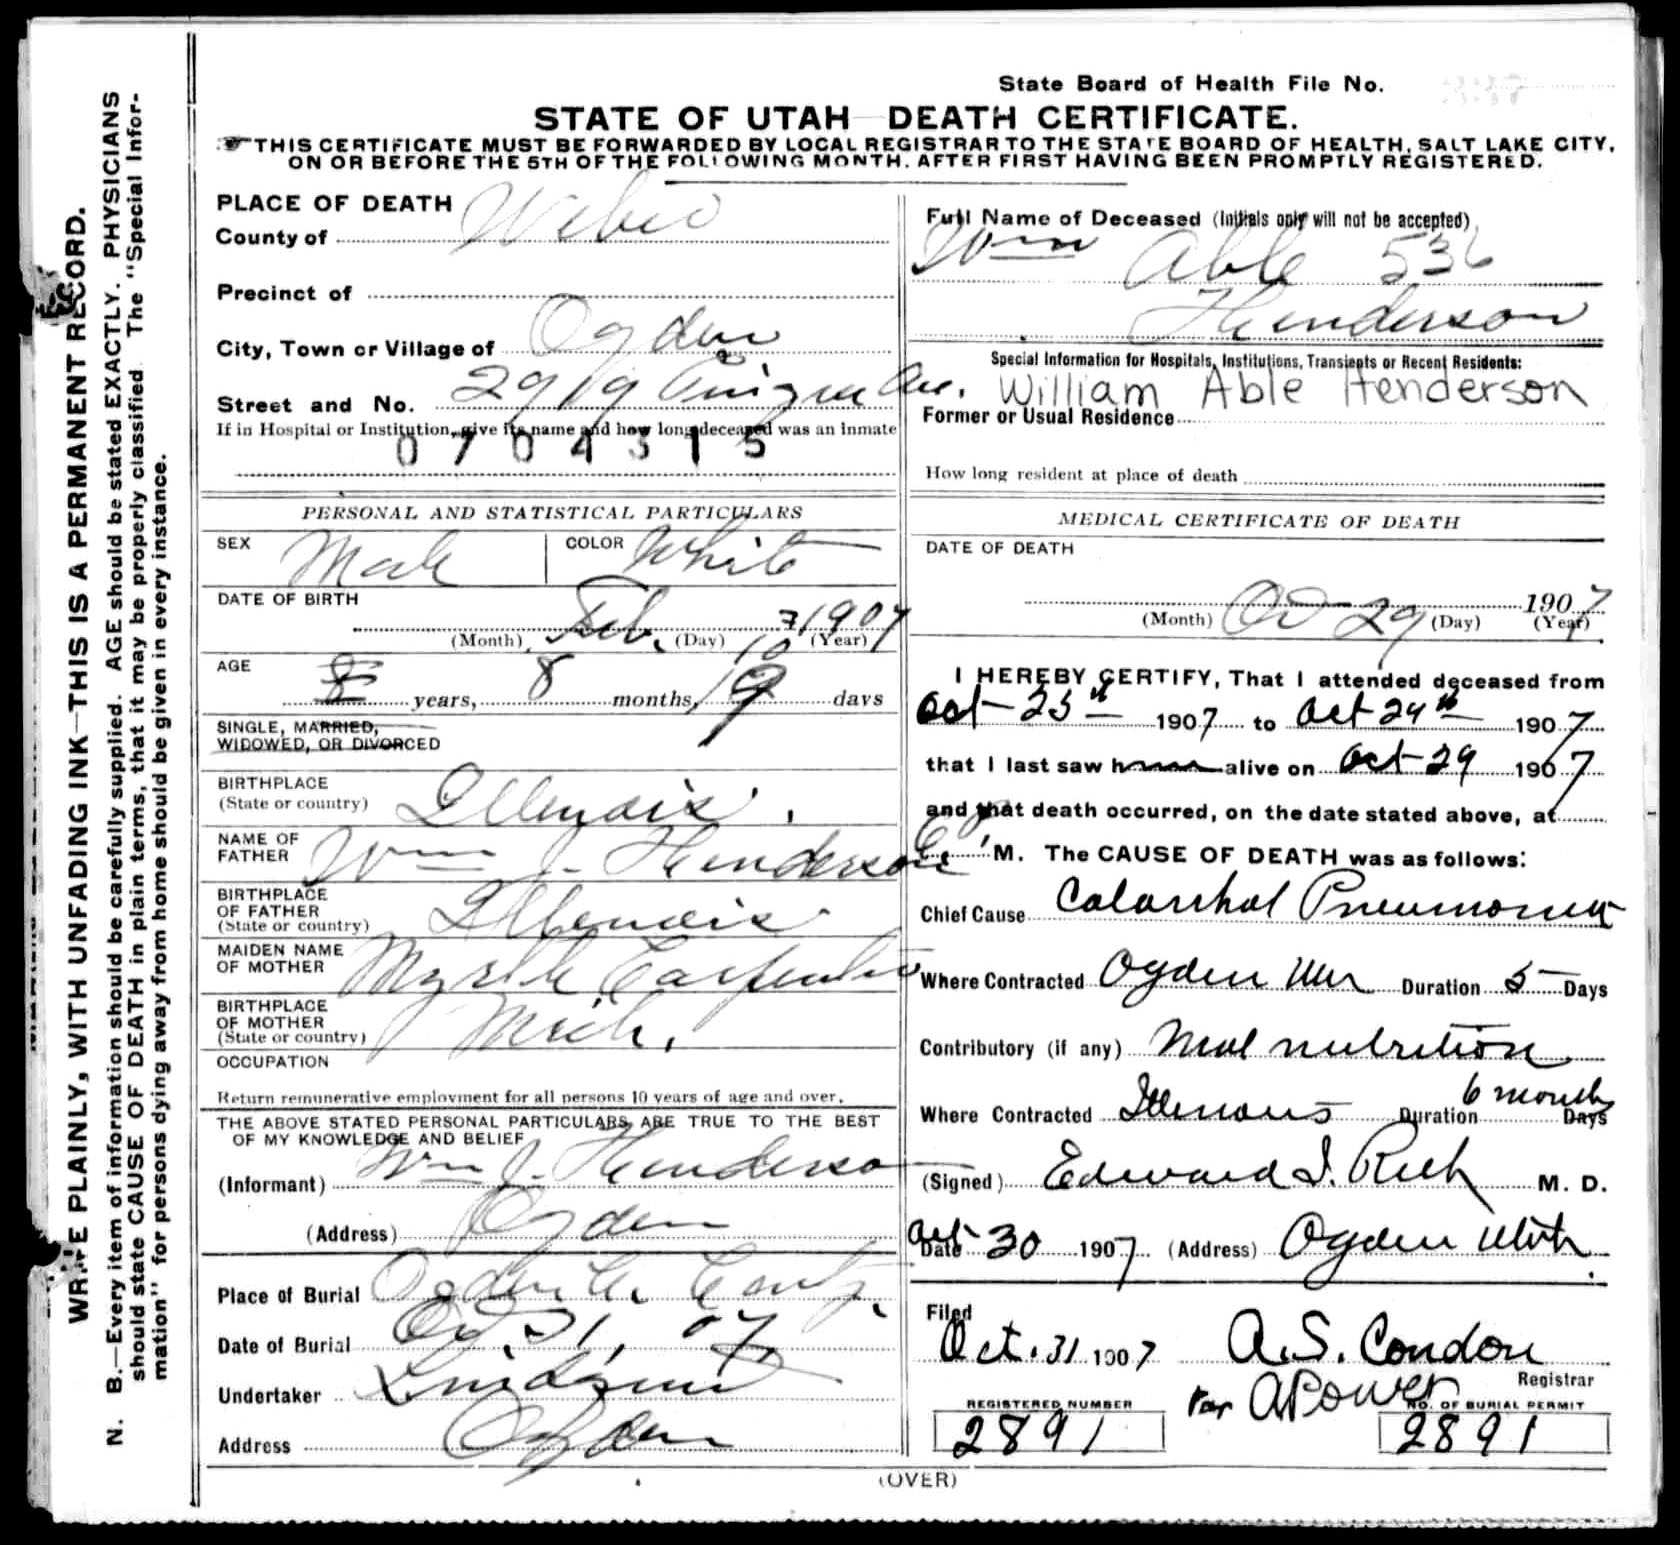 State Board of Health File No.
STATE OF UTAH DEATH CERTIFICATE.
THIS CERTIFICATE MUST BE FORWARDED BY LOCAL REGISTRAR TO THE STATE BOARD OF HEALTH, SALT LAKE CITY,
ON OR BEFORE THE 5TH OF THE FOLLOWING MONTH, AFTER FIRST HAVING BEEN PROMPTLY REGISTERED.
WRITE PLAINLY, WITH UNFADING INK—THIS IS A PERMANENT RECORD.
N. B.—Every item of information should be carefully supplied. AGE should be stated EXACTLY. PHYSICIANS
should state CAUSE OF DEATH in plain terms, that it may be properly classified. The "Special Infor-
mation" for persons dying away from home should be given in every instance.
PLACE OF DEATH
County of Weber
Precinct of
City, Town or Village of Ogden
Street and No. 2919 Ave.
If in Hospital or Institution, give its name and how long deceased was an inmate
0704315
PERSONAL AND STATISTICAL PARTICULARS
SEX Male COLOR White
DATE OF BIRTH
(Month) Feb. (Day) 10 (Year) 1907
AGE
years, 8 months, 19 days
SINGLE, MARRIED,
WIDOWED, OR DIVORCED
BIRTHPLACE
(State or country) Illenois.
NAME OF
FATHER Wm J. Henderson
BIRTHPLACE
OF FATHER
(State or country) Illenois
MAIDEN NAME
OF MOTHER Myrtle Carpenter
BIRTHPLACE
OF MOTHER
(State or country) Mich.
OCCUPATION
Return remunerative employment for all persons 10 years of age and over.
THE ABOVE STATED PERSONAL PARTICULARS ARE TRUE TO THE BEST
OF MY KNOWLEDGE AND BELIEF
(Informant) Wm J. Henderson
(Address) Ogden
Place of Burial Ogden
Date of Burial Oct 31, 07
Undertaker
Address Ogden
Full Name of Deceased (Initials only will not be accepted)
Wm Able 536
Henderson
Special Information for Hospitals, Institutions, Transients or Recent Residents:
William Able Henderson
Former or Usual Residence
How long resident at place of death
MEDICAL CERTIFICATE OF DEATH
DATE OF DEATH
(Month) Oct 29 (Day) 1907 (Year)
I HEREBY CERTIFY, That I attended deceased from
Oct 25th 1907 to Oct 29th 1907
that I last saw h alive on Oct 29 1907
and that death occurred, on the date stated above, at
M. The CAUSE OF DEATH was as follows:
Chief Cause Catarrhal Pneumonia
Where Contracted Ogden Utah Duration 5 Days
Contributory (if any) Mal nutrition
Where Contracted Illenois Duration 6 months Days
(Signed) Edward I. Rich M. D.
Date Oct 30 1907 (Address) Ogden Utah
Filed
Oct. 31 1907 A.S. Condon
Registrar
Per A Power
REGISTERED NUMBER
2891
NO. OF BURIAL PERMIT
2891
(OVER)